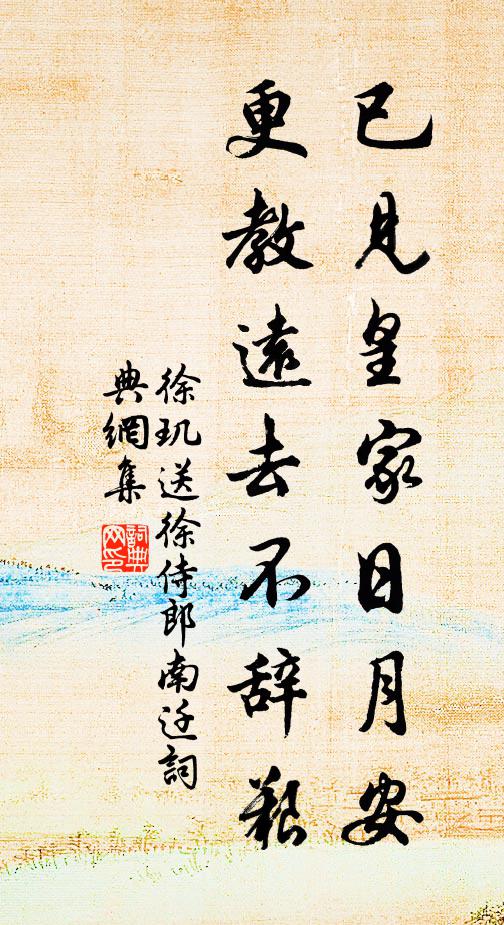 已見皇家日月安
更教遠去不辞艱
徐玑送徐侍郎南迁詞
典網集
詞典网印